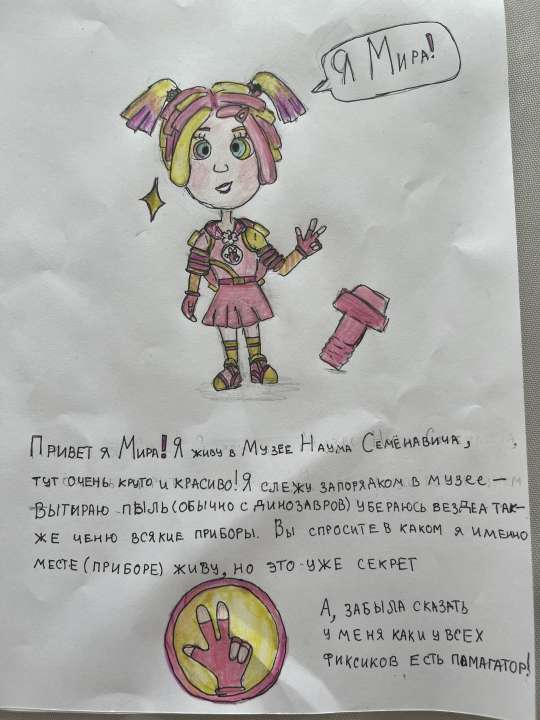 Я Мира!
Привет я Мира! Я живу в Музее Наума Семёнавича,
тут очень круто и красиво! Я слежу запорядком в музее —
вытираю пыль (обычно с динозавров) убераюсь везде а так-
же чиню всякие приборы. Вы спросите в каком я именно
месте (приборе) живу, но это уже секрет
А, забыла сказать
у меня как и у всех
фиксиков есть памагатор!